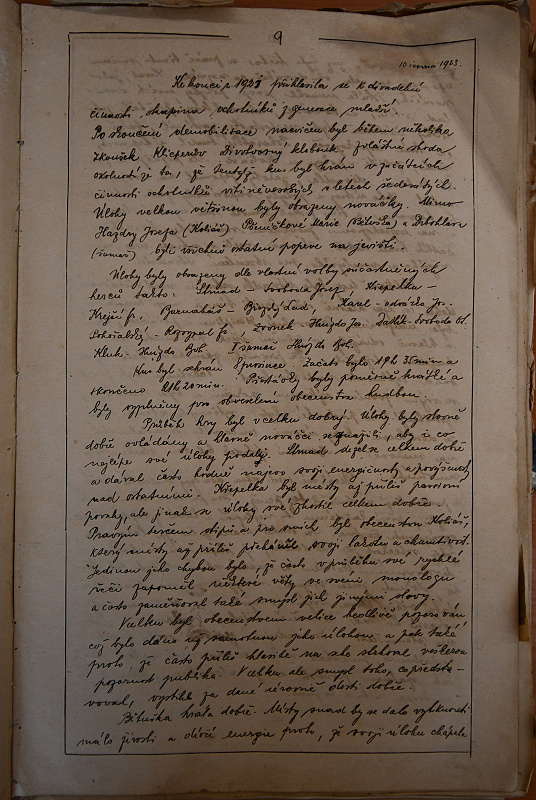 9
10 února 1923.
Ke konci r. 1921 přihlásila se k divadelní
činnosti skupina ochotníků z generace mladší.
Po skončení demobilisace nacvičen byl během několika
zkoušek Klicperův Divotvorný klobouk. Zvláštní shoda
okolností je to, že tentýž kus byl hrán v začátcích
činnosti ochotníků v letech šedesátých.
Úlohy velkou většinou byly obsazeny nováčky. Mimo
Hazdry Josefa (Koliáš) Marie (Bětuška) a
byli všichni ostatní poprvé na jevišti.
Úlohy byly obsazeny dle vlastní volby súčastněných
herců takto: Strnad - Svoboda Josef, Křepelka -
Krejčí Fr., Barnabáš - Lad., Karel - Jos.
Pohořalský - Fr., Zvonek - Hnízdo Jos.
Hnízdo Boh.
Kus byl sehrán 8 prosince. Začato bylo 19 h 35 min a
skončeno 21 h 20 min. Přestávky byly poměrně krátké a
byly vyplněny pro obveselení obecenstva hudbou.
Průběh hry byl vcelku dobrý. Úlohy byly slovně
dobře ovládány a hlavně nováčci se snažili, aby co
nejlépe své úlohy podaly. Strnad držel se celkem dobře
a dával často hodně najevo svoji energičnost a povýšenost
nad ostatními. Křepelka byl místy až příliš pasivní
povahy, ale jinak se úlohy své zhostil celkem dobře.
Pravým terčem vtipů a pro smích byl obecenstvu Koliáš,
který místy až příliš svoji lakotu a chamtivost.
Jedinou jeho chybou bylo, že často v průběhu své rychlé
řeči zapomněl některé věty ve svém monologu
a často zaměňoval také smysl jich jinými slovy.
Vcelku byl obecenstvem velice bedlivě pozorován,
což bylo dáno už samotnou jeho úlohou a pak také
proto, že často příliš hlasitě na sebe strhoval veškerou
pozornost publika. Vcelku ale smysl toho, co představ-
voval, vystihl za dané úrovně dosti dobře.
Bětuška hrála dobře. Místy snad by se dalo vytknouti
málo živosti a dívčí energie proto, že svoji úlohu chápala